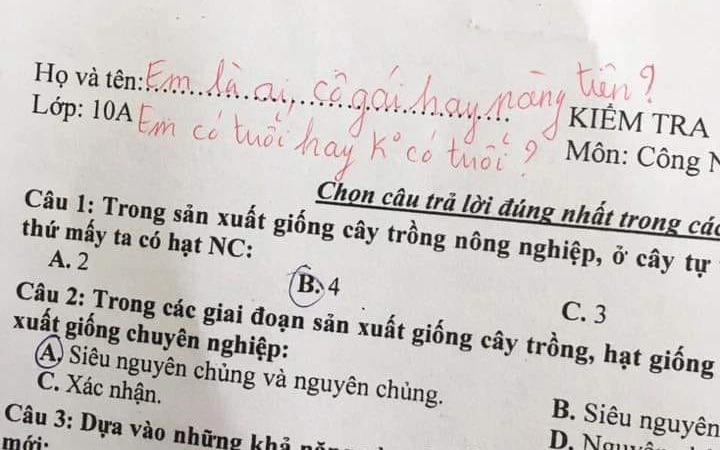 Họ và tên: Em là ai, cô gái hay nàng tiên?
KIỂM TRA
Lớp: 10A Em có tuổi hay k° có tuổi?
Môn: Công
Chọn câu trả lời đúng nhất trong các
Câu 1: Trong sản xuất giống cây trồng nông nghiệp, ở cây tự
thứ mấy ta có hạt NC:
A. 2 B. 4 C. 3
Câu 2: Trong các giai đoạn sản xuất giống cây trồng, hạt giống
xuất giống chuyên nghiệp:
A. Siêu nguyên chủng và nguyên chủng.
B. Siêu nguyên
C. Xác nhận.
D.
Câu 3: Dựa vào những khả
mới: